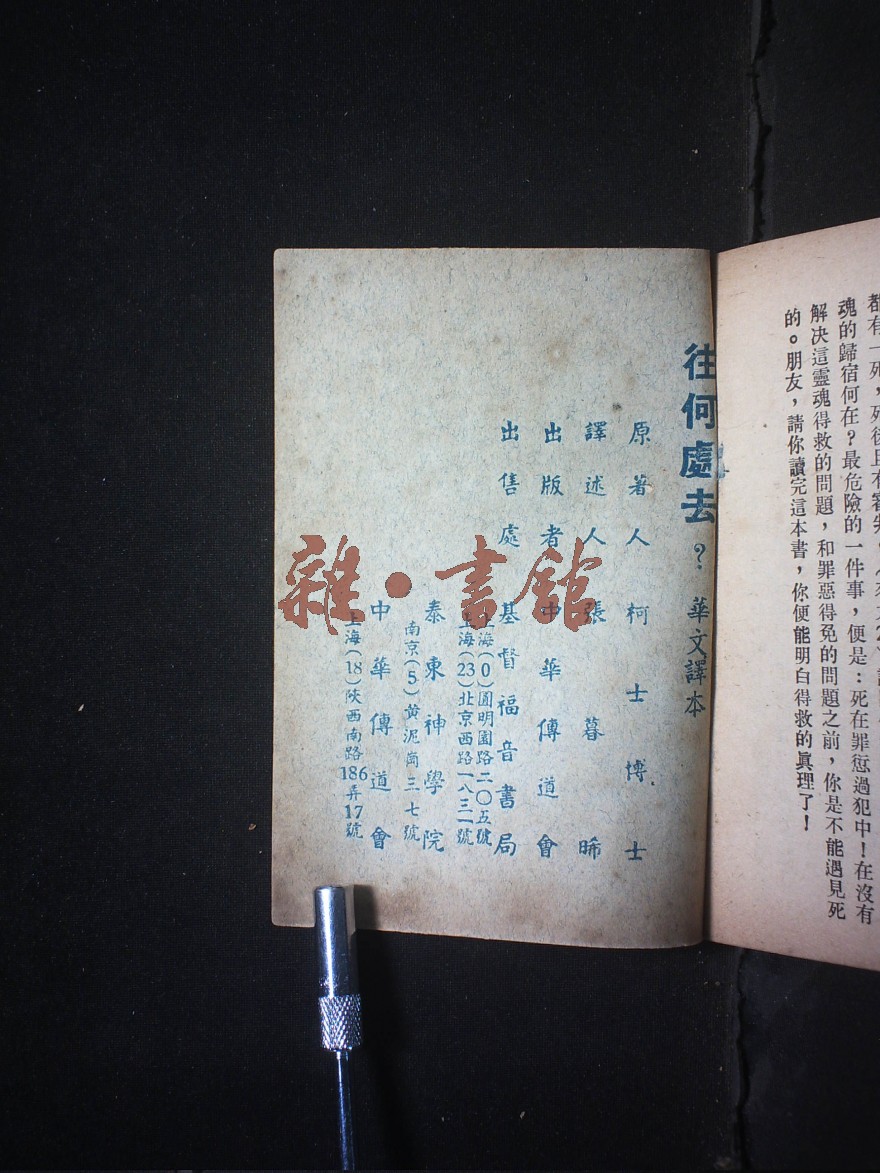 都有一死，死後且有審判
魂的歸宿何在？最危險的一件事，便是：死在罪愆過犯中！在沒有
解决這靈魂得救的問題，和罪惡得免的問題之前，你是不能遇見死
的。朋友，請你讀完這本書，你便能明白得救的眞理了！
往何處去？華文譯本
原著人 柯士博士
譯述人 張暮晞
出版者 中華傳道會
出售處 基督福音書局
上海(0)圓明園路二〇五號
上海(23)北京西路一八三一號
泰東神學院
南京(5)黄泥崗三七號
中華傳道會
上海(18)陜西南路186弄17號
雜·書館